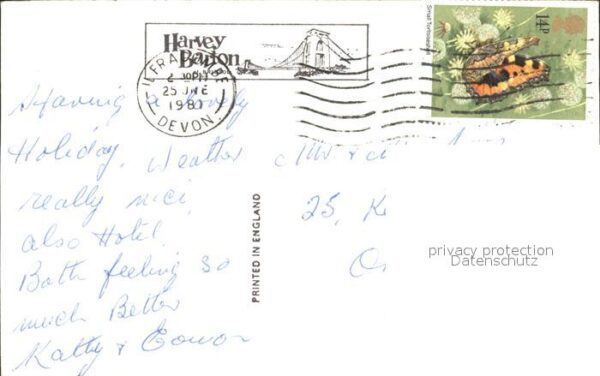 Harvey
Barton
ILFRACOMBE
25 JNE
1981
DEVON.
Small Tortoiseshell
14P
Having a lovely
Holiday, Weather
really nici
also Hotel.
Both feeling so
much Better
Kathy &
PRINTED IN ENGLAND
Mr &
25, K
privacy protection
Datenschutz